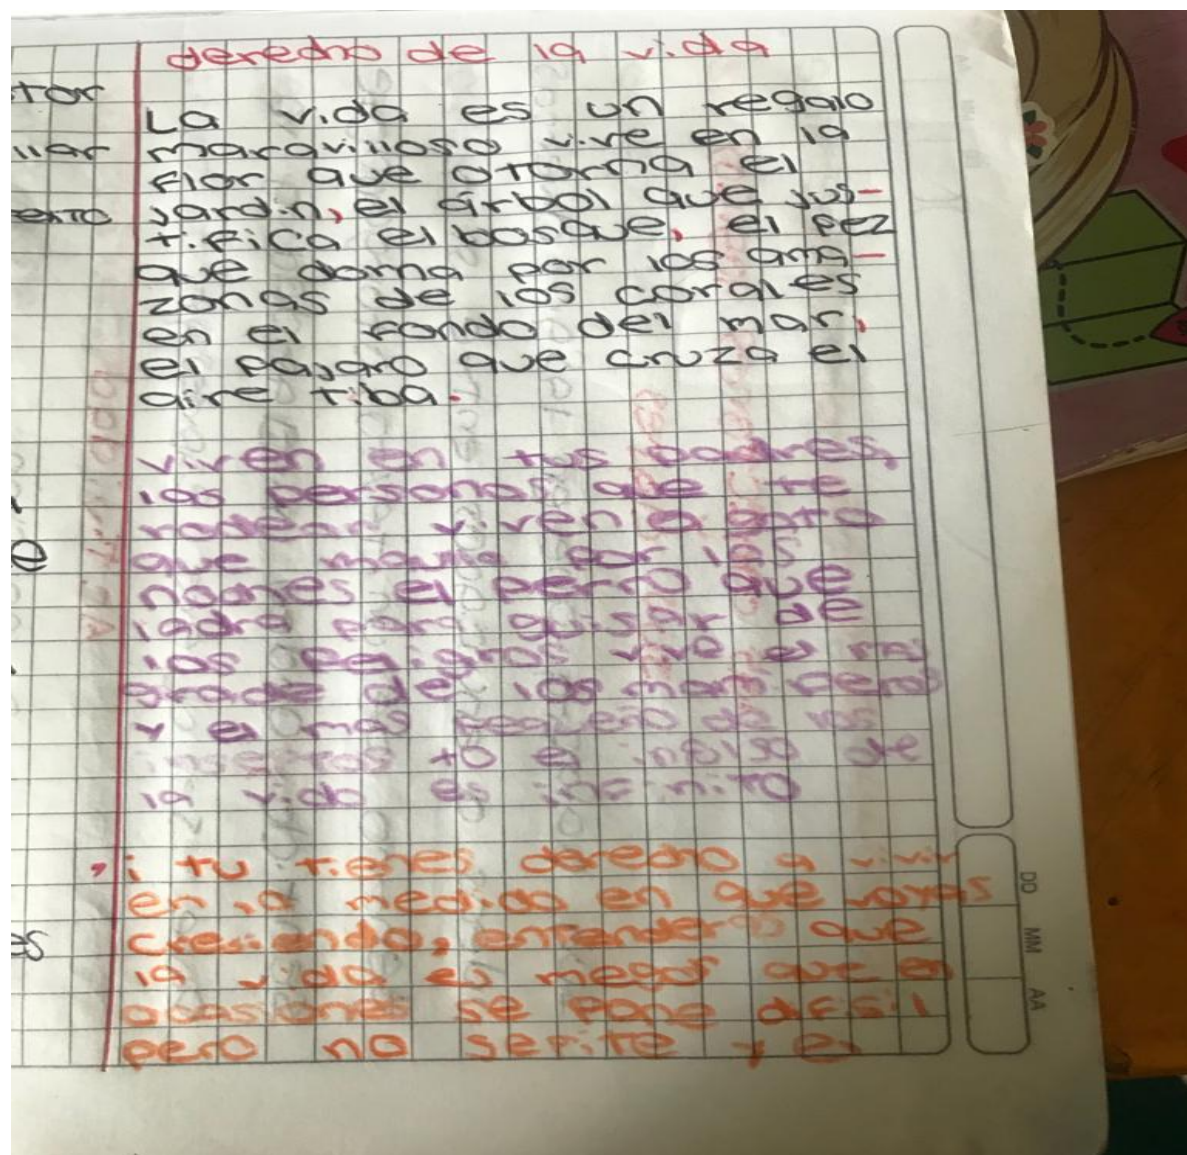 derecho de la vida
tor
La vida es un regalo
llar
maravilloso vive en la
flor que otorna el
ento
jardin, el arbol que jus-
tifica el bosque, el pez
que doma por los ama-
zonas de los corales
en el fondo del mar,
el pajaro que cruza el
aire tiba.
viren en tus padres,
las personas que te
rodean y viren o gato
que maulla por las
noches el perro que
ladra para quisar de
los peligros vive el ms
grade de los mamineros
y el mas pequeño de los
insectos to es de
la vida es infinito
i tu tienes derecho a vivir
en la medida en que vayas
cresiendo, entender que
es
la vida es megor que en
acasiones se pone difisil
pero no serite y es
DD MM AA